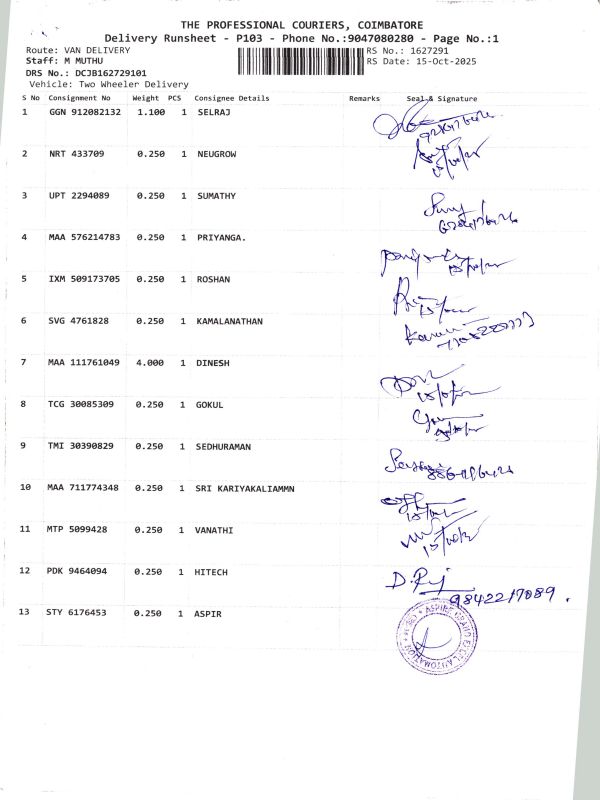 THE PROFESSIONAL COURIERS, COIMBATORE
Delivery Runsheet - P103 - Phone No.:9047080280 - Page No.:1
Route: VAN DELIVERY RS No.: 1627291
Staff: M MUTHU RS Date: 15-Oct-2025
DRS No.: DCJB162729101
Vehicle: Two Wheeler Delivery
S No Consignment No Weight PCS Consignee Details Remarks Seal & Signature
1 GGN 912082132 1.100 1 SELRAJ
2 NRT 433709 0.250 1 NEUGROW
3 UPT 2294089 0.250 1 SUMATHY
4 MAA 576214783 0.250 1 PRIYANGA.
5 IXM 509173705 0.250 1 ROSHAN
6 SVG 4761828 0.250 1 KAMALANATHAN
7 MAA 111761049 4.000 1 DINESH
8 TCG 30085309 0.250 1 GOKUL
9 TMI 30390829 0.250 1 SEDHURAMAN
10 MAA 711774348 0.250 1 SRI KARIYAKALIAMMN
11 MTP 5099428 0.250 1 VANATHI
12 PDK 9464094 0.250 1 HITECH
9842217089.
13 STY 6176453 0.250 1 ASPIR